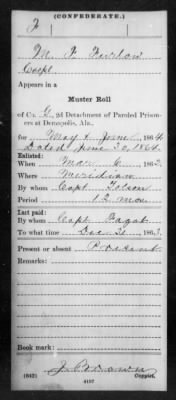 (CONFEDERATE.)
F
M. P.
Corpl
Appears in a
Muster Roll
of Co. G, 2d Detachment of Paroled Prison-
ers at Demopolis, Ala.
for May & June 1864
Dated June 30, 1864.
Enlisted:
When Mar 6, 1862
Where Meridian
By whom Capt
Period 12 mos
Last paid:
By whom Capt
To what time Dec 31, 1863
Present or absent Present
Remarks:
Book mark:
J. Brown
(642) Copyist.
4197